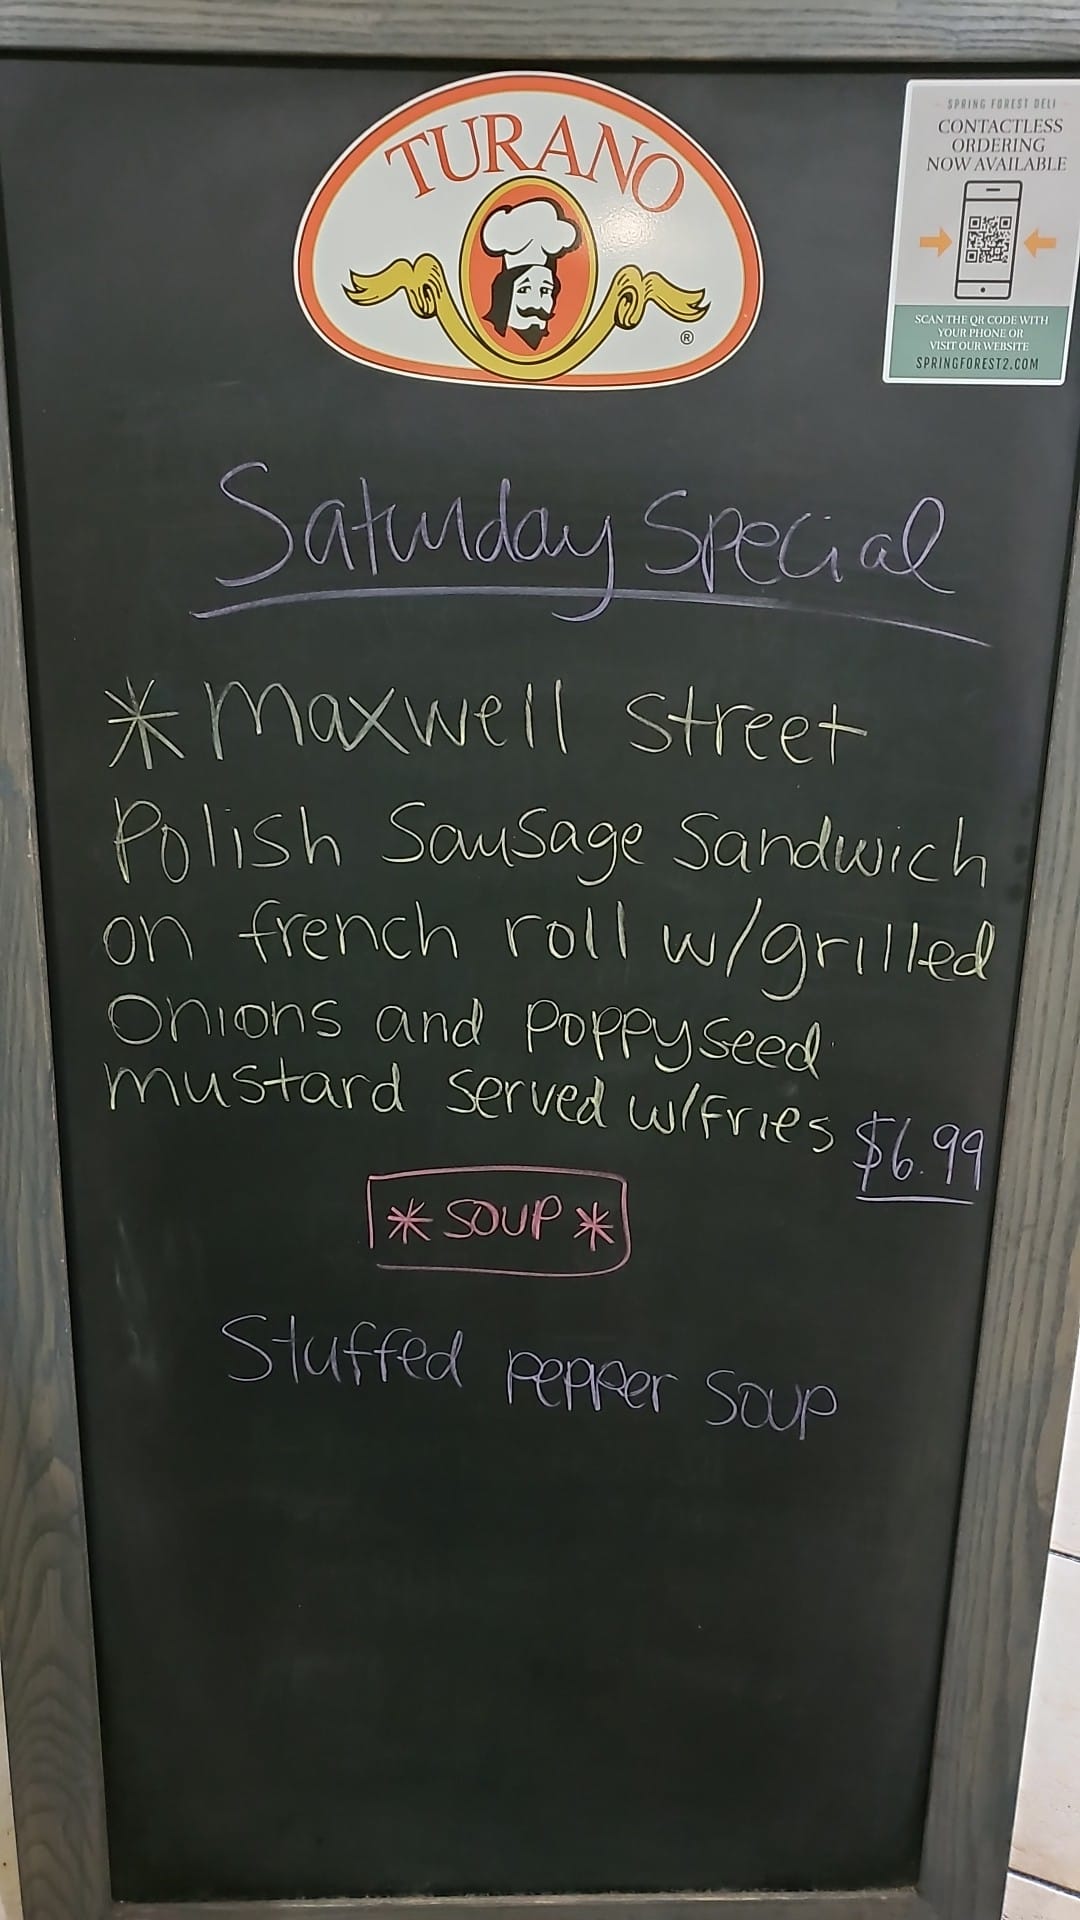 TURANO
®
SPRING FOREST DELI
CONTACTLESS
ORDERING
NOW AVAILABLE
SCAN THE QR CODE WITH
YOUR PHONE OR
VISIT OUR WEBSITE
SPRINGFOREST2.COM
Saturday Special
* Maxwell Street
Polish Sausage Sandwich
on french roll w/grilled
Onions and Poppyseed
mustard served w/fries $6.99
* SOUP *
Stuffed pepper soup